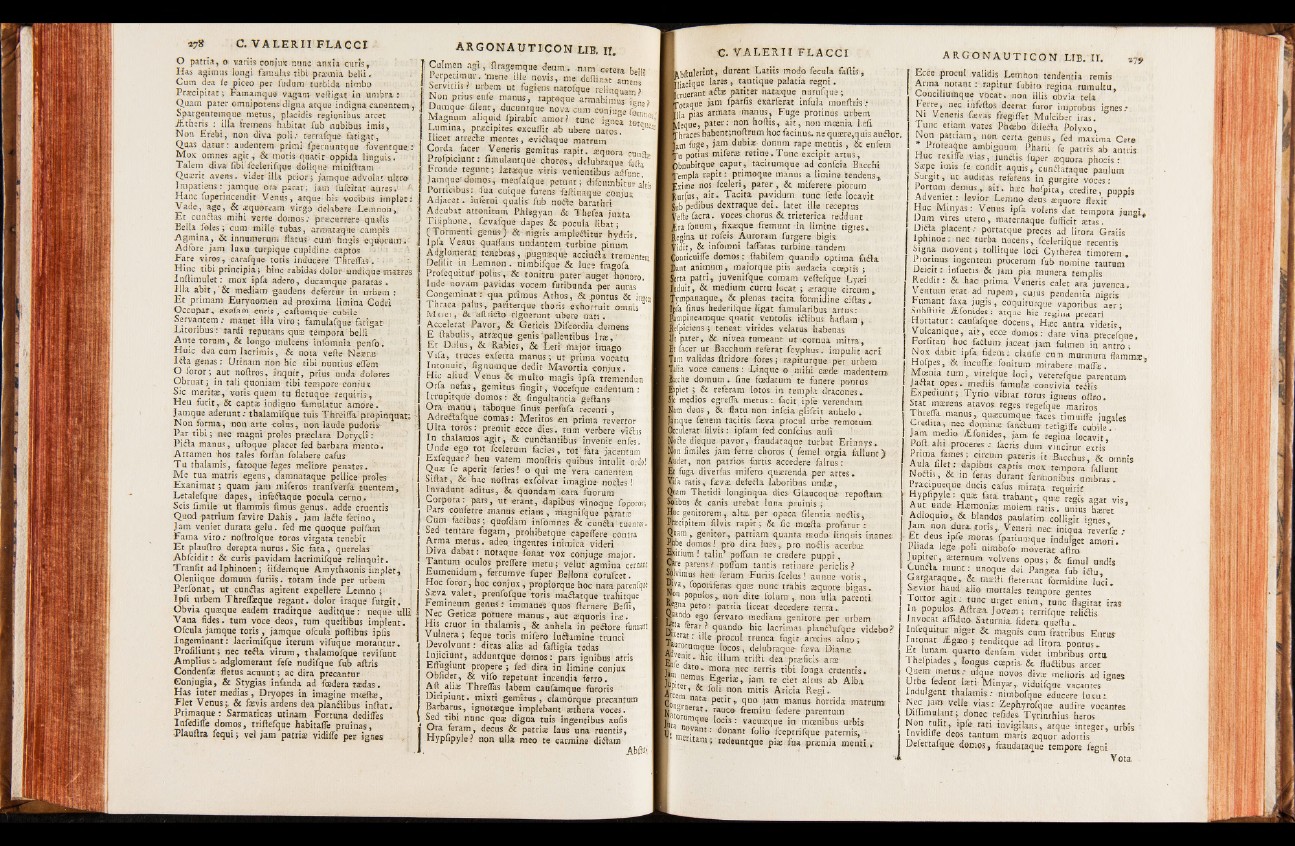 278 C. VALERII FLACCI
O patria, o variis conjux nunc anxia curis,
Has agimus longi famulas tibi præmia belli.
Cum dea ſe piceo per ſudum turbida nimbo
Præcipitat; Famamque vagam veſtigat in umbra:
Quam pater omnipotens digna atque indigna canentem,
Spargentemque metus, placidis regionibus arcet
Ætheris: illa fremens habitat ſub nubibus imis,
Non Erebi, non diva poli: terriſque fatigat,
Quas datur: audentem primi ſpernuntque foventque:
Mox omnes agit, & motis quatit oppida linguis.
Talem diva ſibi ſceleriſque dolique miniſtram
Quærit avens. videt illa prior; jamque advolat ultro
Impatiens: jamque ora parat, jam ſuſcitat aures.
Hanc ſuperincendit Venus, atque his vocibus implet:
Vade, age, & æquoream virgo delabere Lemnon,
Et cunctas mihi verte domos: præcurrere qualis
Bella ſoles; cum mille tubas, armataque campis
Agmina, & innumerum flatus cum fingis equorum.
Adfore jam luxu turpique cupidine captos
Fare viros, caraſque toris inducere Threſſas.
Hinc tibi principia; hinc rabidas dolor undique matres
Inſtimulet: mox ipſa adero, ducamque paratas.
Illa abit, & mediam gaudens defertur in urbem:
Et primam Eurynomen ad proxima limina Codri
Occupat, exeſam curis, caſtumque cubile
Servantem: manet illa viro; famulaſque fatigat
Litoribus: tardi reputans quæ tempora belli
Ante torum, & longo mulcens inſomnia penſo.
Huic dea cum lacrimis, & nota veſte Neæræ
Icta genas: Utinam non hic tibi nuntius eſſem
O ſoror; aut noſtros, inquit, prius unda dolores
Obruat; in tali quoniam tibi tempore conjux
Sic meritæ, votis quem tu fletuque requiris,
Heu furit, & captæ indigno famulatur amore.
Jamque aderunt: thalamiſque tuis Threiſſa propinquat;
Non forma, non arte colus, non laude pudoris
Par tibi; nec magni proles præclara Dorycli:
Picta manus, uſtoque placet ſed barbara mento.
Attamen hos tales forſan ſolabere caſus
Tu thalamis, fatoque leges meliore penates.
Me tua matris egens, damnataque pellice proles
Exanimat; quam jam miſeros tranſverſa tuentem,
Letaleſque dapes, infectaque pocula cerno.
Scis ſimile ut flammis ſimus genus. adde cruentis
Quod patrium ſævire Dahis. jam lacte ferino,
Jam veniet durata gelu. ſed me quoque pulſam
Fama viro: noſtroſque toros virgata tenebit
Et plauſtro derepta nurus. Sic fata, querelas
Abſcidit: & curis pavidam lacrimiſque relinquit.
Tranſit ad Iphinoen; iiſdemque Amythaonis implet,
Oleniique domum furiis. totam inde per urbem
Perſonat, ut cunctas agirent expellere Lemno;
Ipſi urbem Threſſæque regant. dolor iraque ſurgit.
Obvia quæque eadem traditque auditque: neque ulli
Vana fides. tum voce deos, tum queſtibus implent.
Oſcula jamque toris, jamque oſcula poſtibus ipſis
Ingeminant: lacrimiſque iterum viſuque morantur.
Proſiliunt; nec tecta virum, thalamoſque reviſunt
Amplius: adglomerant ſeſe nudiſque ſub aſtris
Condenſæ fletus acuunt; ac dira precantur
Conjugia, & Stygias infanda ad fœdera tædas.
Has inter medias, Dryopes in imagine mœſtæ,
Flet Venus; & ſævis ardens dea planctibus inſtat.
Primaque: Sarmaticas utinam Fortuna dediſſes
Inſediſſe domos, triſteſque habitaſſe pruinas,
Plauſtra ſequi; vel jam patriæ vidiſſe per ignes
ARGONAUTICON LIB. II.
Culmen agi, ſtragemque deum. nam cetera belli
Perpetimur. mene ille novis, me deſtinat amens
Servitiis? urbem ut fugiens natoſque relinquam?
Non prius enſe manus, raptoque armabimus igne?
Dumque ſilent, ducuntque nova cum conjuge ſomnos,
Magnum aliquid ſpirabit amor? tunc ignea torquens
Lumina, præcipites excuſſit ab ubere natos.
Ilicet arrectæ mentes, evictaque matrum
Corda ſacer Veneris gemitus rapit. æquora cunctæ
Proſpiciunt; ſimulantque choros, delubraque feſta
Fronde tegunt; lætæque viris venientibus adſunt.
Jamque domos, menſaſque petunt; diſcumbitur altis
Porticibus: ſua cuique furens feſtinaque conjux
Adjacet. inferni qualis ſub nocte barathri
Adcubat attonitum Phlegyan & Theſea juxta
Tiſiphone, ſævaſque dapes & pocula libat;
(Tormenti genus) & nigris amplectitur hydris.
Ipſa Venus quaſſans undantem turbine pinum
Adglomerat tenebras, pugnæque accincta trementem
Deſilit in Lemnon. nimbiſque & luce fragoſa
Proſequitur polus, & tonitru pater auget honoro.
Inde novam pavidas vocem furibunda per auras
Congeminat: qua primus Athos, & pontus & ingens
Thraca palus, pariterque thoris exhorruit omnis
Mater, & adſtricto riguerunt ubere nati.
Accelerat Pavor, & Geticis Diſcordia demens
E ſtabulis, atræque genis pallentibus Iræ,
Et Dolus, & Rabies, & Leti major imago
Viſa, truces exſerta manus; ut prima vocatu
Intonuit, ſignumque dedit Mavortia conjux.
Hic aliud Venus & multo magis ipſa tremendum
Orſa nefas, gemitus fingit, voceſque cadentum:
Irrupitque domos: & ſingultantia geſtans
Ora manu, taboque ſinus perfuſa recenti,
Adrectaſque comas: Meritos en prima revertor
Ulta toros: premit ecce dies. tum verbere victas
In thalamos agit, & cunctantibus invenit enſes.
Unde ego tot ſcelerum facies, tot fata jacentum
Exſequar? heu vatem monſtris quibus intulit ordo!
Quæ ſe aperit ſeries! o qui me vera canentem
Siſtat, & hac noſtras exſolvat imagine noctes!
Invadunt aditus, & quondam cara ſuorum
Corpora: pars, ut erant, dapibus vinoque ſopores;
Pars conferre manus etiam, magniſque paratæ
Cum facibus; quoſdam inſomnes & cuncta tuentes.
Sed tentare fugam, prohibetque capeſſere contra
Arma metus. adeo ingentes inimica videri
Diva dabat: notaque ſonat vox conjuge major.
Tantum oculos preſſere metu; velut agmina cernant
Eumenidum, ferrumve ſuper Bellona coruſcet.
Hoc ſoror, hoc conjux, propiorque hoc nata parenſque
Sæva valet, prenſoſque toris mactatque trahitque
Femineum genus: immanes quos ſternere Beſſi,
Nec Geticæ potuere manus, aut æquoris iræ.
His cruor in thalamis, & anhela in pectore fumant
Vulnera; ſeque toris miſero luctamine trunci
Devolvunt: diras aliæ ad faſtigia tedas
Injiciunt, adduntque domos: pars ignibus atris
Effugiunt propere; ſed dira in limine conjux
Obſidet, & viſo repetunt incendia ferro.
Aſt aliæ Threſſas labem cauſamque furoris
Diripiunt. mixti gemitus, clamorque precantum
Barbarus, ignotæque implebant æthera voces.
Sed tibi nunc quæ digna tuis ingentibus auſis
Ora feram, decus & patriæ laus una ruentis,
Hypſipyle? non ulla meo te carmine dictam
Abſtu-
C. VALERII FLACCI
Abſtulerint, durent Latiis modo ſecula faſtis,
Iliacique lares, tantique palatia regni.
Irruerant actæ pariter natæque nuruſque;
Totaque jam ſparſis exarſerat inſula monſtris:
Illa pias armata manus, Fuge protinus urbem
Meque, pater: non hoſtis, ait, non mœnia læſi
Thraces habent; noſtrum hoc facinus. ne quære, quis auctor.
Jam fuge, jam dubiæ donum rape mentis, & enſem
Tu potius miſeræ retine. Tunc excipit artus,
Obnubitque caput, tacitumque ad conſcia Bacchi
Templa rapit: primoque manus a limine tendens,
Exime nos ſceleri, pater, & miſerere piorum
Rurſus, ait. Tacita pavidum tunc ſede locavit
Sub pedibus dextraque dei. latet ille receptus
Veſte ſacra. voces chorus & trieterica reddunt
Æra ſonum, fixæque fremunt in limine tigres.
Regina ut roſeis Auroram ſurgere bigis
Vidit, & inſomni laſſatas turbine tandem
Conticuiſſe domos: ſtabilem quando optima facta
Dant animum, majorque piis audacia cœptis;
Serta patri, juvenifque comam veſteſque Lyæi
Induit, & medium curru locat; æraque circum,
Tympanaque, & plenas tacita formidine ciſtas.
Ipſa ſinus hederiſque ligat famularibus artus:
Pampineamque quatit ventoſis ictibus haſtam,
Reſpiciens; teneat virides velatus habenas
Ut pater, & nivea tumeant ut cornua mitra,
Ut ſacer ut Bacchum referat ſcyphus. impulit acri
Tum validas ſtridore fores; rapiturque per urbem
Talia voce canens: Linque o mihi cæde madentem
Bacche domum. ſine fœdatum te funere pontus
Expiet; & referam lotos in templa dracones.
Sic medios egreſſa metus: facit ipſe verendam
Nam deus, & flatu non inſcia gliſcit anhelo.
Jamque ſenem tacitis ſæva procul urbe remotum
Occulerat ſilvis: ipſam ſed conſcius auſi
Nocte dieque pavor, fraudataque turbat Erinnys.
Non ſimiles jam ferre choros (ſemel orgia fallunt)
Audet, non patrios furtis accedere ſaltus:
Et fuga diverſas miſero quærenda per artes.
Viſa ratis, ſævæ defecta laboribus undæ,
Quam Thetidi longinqua dies Glaucoque repoſtam
Solibus & canis urebat luna pruinis;
Huc genitorem, altæ per opaca ſilentia noctis,
Præcipitem ſilvis rapit; & ſic mœſta profatur:
Quam, genitor, patriam quanta modo linquis inanes
Pube domos! pro dira lues, pro noctis acerbæ
Exitium! talin' poſſum te credere puppi,
Care parens? poſſum tantis retinere periclis?
Solvimus heu ſerum Furiis ſcelus! annue votis,
Diva, ſoporiferas quæ nunc trahis æquore bigas.
Non populos, non dite ſolum, non ulla parenti
Regna peto: patria liceat decedere terra.
Quando ego ſervato mediam genitore per urbem
Læta ferar? quando hic lacrimas planctuſque videbo?
Dixerat: ille procul trunca fugit anxius alno;
Taurorumque locos, delubraque ſæva Dianæ
Advenit. hic illum triſti dea præficis aræ
Enſe dato. mora nec terris tibi longa cruentis.
Jam nemus Egeriæ, jam te ciet altus ab Alba
Jupiter, & ſoli non mitis Aricia Regi.
Arcem nata petit, quo jam manus horrida matrum
Congruerat. rauco fremitu ſedere parentum
Natorumque locis: vacuæque in mœnibus urbis
Jura novant: donant ſolio ſceptriſque paternis,
Ut meritam; redeuntque piæ ſua præmia menti.
ARGONAUTICON LIB. II. 279
Ecce procul validis Lemnon tendentia remis
Arma notant: rapitur ſubito regina tumultu,
Conciliumque vocat. non illis obvia tela
Ferre, nec infeſtos deerat furor improbus ignes:
Ni Veneris ſævas fregiſſet Mulciber iras.
Tunc etiam vates Phœbo dilecta Polyxo,
Non patriam, non certa genus, ſed maxima Cete
* Proteaque ambiguum Pharii ſe patris ab antris
Huc rexiſſe vias, junctis ſuper æquora phocis:
Sæpe imis ſe condit aquis, cunctataque paulum
Surgit, ut auditas referens in gurgite voces:
Portum demus, ait. hæc hoſpita, credite, puppis
Advenit: levior Lemno deus æquore flexit
Huc Minyas: Venus ipſa volens dat tempora jungi,
Dum vires utero, maternaque ſufficit ætas.
Dicta placent: portatque preces ad litora Graiis
Iphinoe: nec turba nocens, ſceleriſque recentis
Signa movent; tollitque loci Cytherea timorem.
Protinus ingentem procerum ſub nomine taurum
Deicit: inſuetis & jam pia munera templis
Reddit: & hac prima Veneris calet ara juvenca.
Ventum erat ad rupem, cujus pendentia nigris
Fumant ſaxa jugis, coquiturque vaporibus aer;
Subſtitit Æſonides: atque hic regina precari
Hortatur: cauſaſque docens, Hæc antra videtis,
Volcanique, ait, ecce domos: date vina preceſque.
Forſitan hoc factum jaceat jam fulmen in antro.
Nox dabit ipſa fidem: clauſæ cum murmura flammæ,
Hoſpes, & incuſſæ ſonitum mirabere maſſæ.
Mœnia tum, vireſque loci, veterefque parentum
Jactat opes. mediis famulæ convivia tectis
Expediunt; Tyrio vibrat torus igneus oſtro.
Stat mærens atavos reges regeſque maritos
Threſſa manus, quæcumque faces timuiſſe jugales
Credita, nec dominæ ſanctum tetigiſſe cubile.
Jam medio Æſonides, jam ſe regina locavit,
Poſt alii proceres: ſacris dum vincitur extis
Prima fames: circum pateris it Bacchus, & omnis
Aula ſilet: dapibus captis mox tempora fallunt
Noctis, & in ſeras durant ſermonibus umbras.
Præcipueque ducis caſus mirata requirit
Hypſipyle: quæ fata trahant, quæ regis agat vis,
Aut unde Hæmoniæ moiem ratis. unius hæret
Adloquio, & blandos paulatim colligit ignes,
Jam non dura toris, Veneri nec iniqua reverſæ:
Et deus ipſe moras ſpatiumque indulget amori.
Pliada lege poli nimboſo moverat aſtro
Jupiter, æternum volvens opus; & ſimul undis
Cuncta ruunt: unoque dei Pangæa ſub ictu,
Gargaraque, & mæſti ſteterant formidine luci.
Sævior haud alio mortales tempore gentes
Tortor agit: tunc urget enim, tunc flagitat iras
In populos Aſtræa Jovem: terriſque relictis
Invocat aſſiduo Saturnia ſidera queſtu.
Inſequitur niger & magnis cum fratribus Eurus
Intonat Ægæo; tenditque ad litora pontus.
Et lunam quarto denſam videt imbribus ortu
Theſpiades, longus cœptis & fluctibus arcet
Quem metus: uſque novos divæ melioris ad ignes
Urbe ſedent læti Minyæ, viduiſque vacantes
Indulgent thalamis: nimboſque educere luxu:
Nec jam velle vias: Zephyroſque audire vocantes
Diſſimulant; donec reſides Tyrinthius heros
Non tulit, ipſe rati invigilans, atque integer, urbis
Invidiſſe deos tantum maris æquor adortis
Deſertaſque domos, fraudataque tempore ſegni
Vota